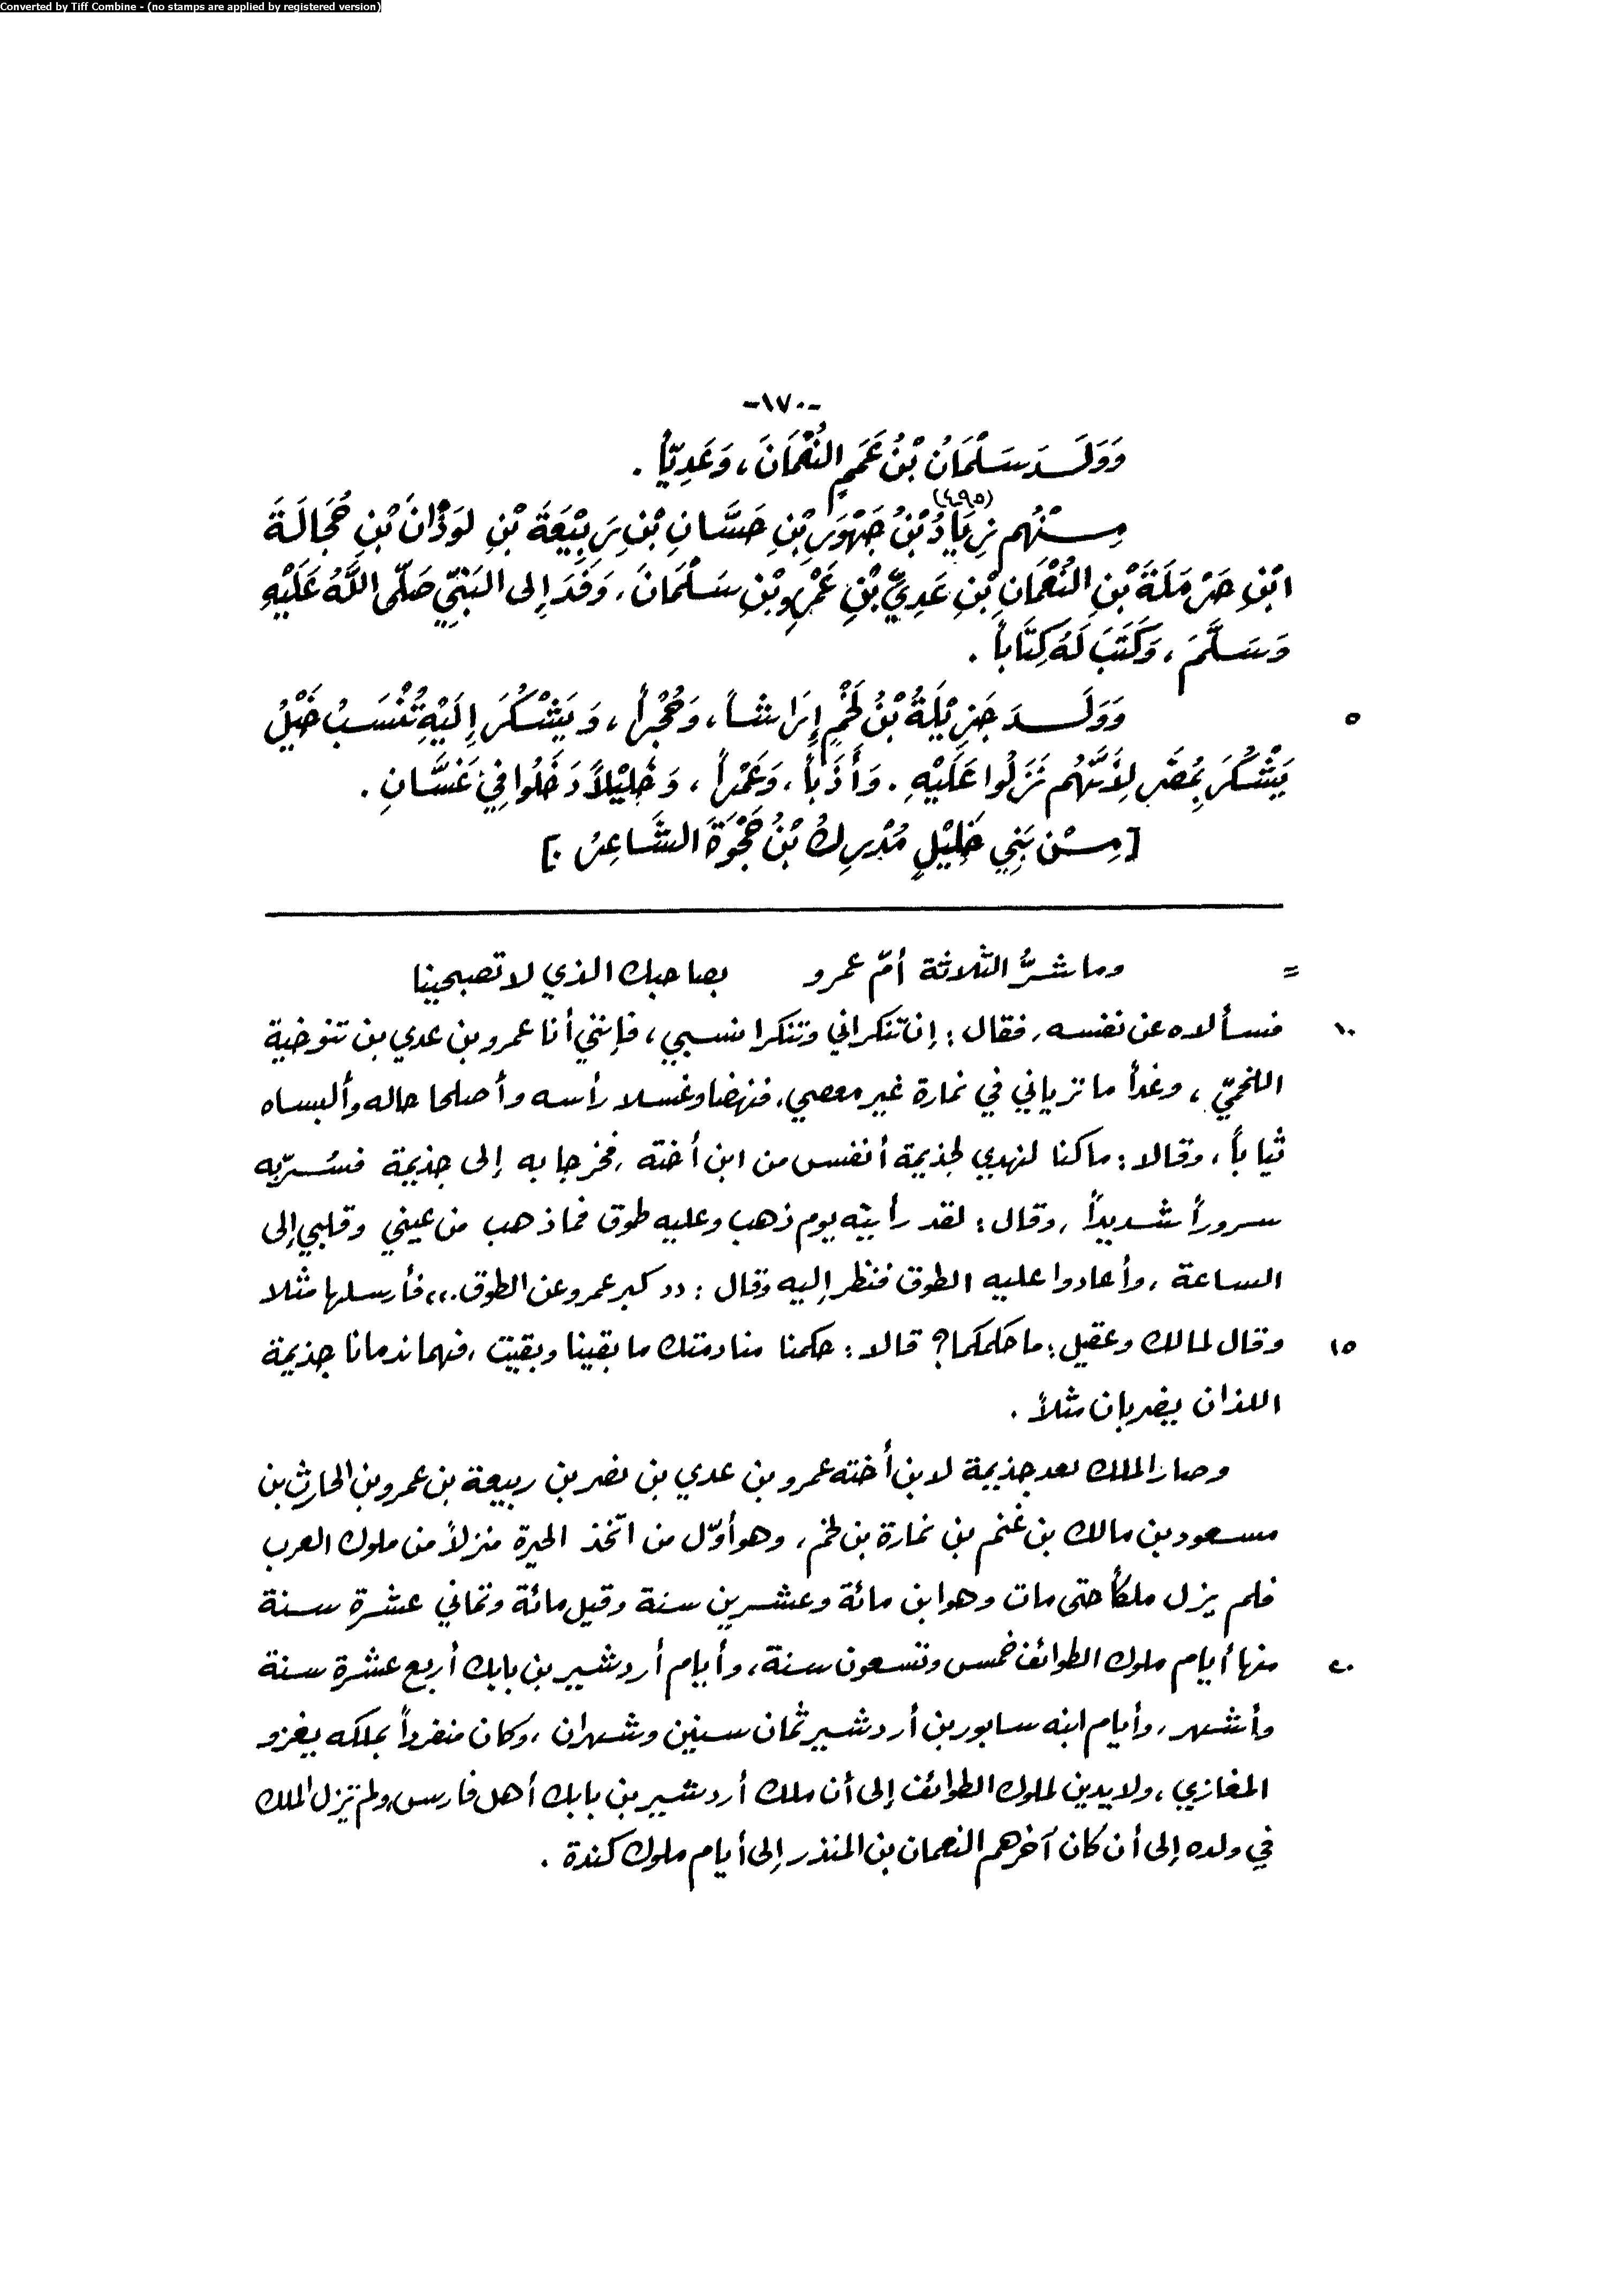 Converted by Tiff Combine - (no stamps are applied by registered version)
-١٧٠-
وَوَلَدَ سَلْمَانُ بْنُ عَمَمٍ النُّعْمَانَ، وَعَدِيّاً .
مِنْهُم زِيَادُ (٤٩٥) بْنُ جَهْوَرِ بْنِ حَسَّانِ بْنِ رَبِيْعَةَ بْنِ لَوْذَانَ بْنِ حُجَالَةَ
ابْنِ حَرْمَلَةَ بْنِ النُّعْمَانِ بْنِ عَدِيِّ بْنِ عَمْرِو بْنِ سَلْمَانَ، وَفَدَ إِلى النَّبِيِّ صَلَّى اللَّهُ عَلَيْهِ
وَسَلَّمَ، وَكَتَبَ لَهُ كِتَاباً .
٥ وَوَلَدَ جَزِيْلَةُ بْنُ لَخْمٍ إِرَاشاً، وَحُجْراً، وَيَشْكُرَ إِلَيْهِ تُنْسَبُ جَبَلُ
يَشْكُرَ بِمُصْرَ لِأَنَّهُم نَزَلُوا عَلَيْهِ . وَأَذَباً، وَعَمْراً، وَخَلِيْلاً دَخَلُوا فِي غَسَّانِ .
[مِنْ بَنِي خَلِيْلٍ مُدْرِكُ بْنُ حَجْوَةَ الشَّاعِرُ .]
= وما شرُّ الثلاثة أمّ عمرو بصاحبك الذي لا تصبحينا
١٠ فسألاه عن نفسه، فقال : إن تنكراني وتنكرا نسبي، فإنني أنا عمرو بن عدي بن تنوخية
اللخميّ، وغداً ما ترياني في نمارة غير معصي، فنهضا وغسلا رأسه وأصلحا حاله وألبساه
ثياباً، وقالا : ما كنا لنهدي لجذيمة أنفس من ابن أخته، فخرجا به إلى جذيمة فسُرّ به
سروراً شديداً، وقال : لقد رأيته يوم ذهب وعليه طوق فما ذهب من عيني وقلبي إلى
الساعة، وأعادوا عليه الطوق فنظر إليه وقال : ,, كبر عمرو عن الطوق.،، فأرسلها مثلا
١٥ وقال لمالك وعقيل : ما حكمكما؟ قالا : حكمنا منادمتك ما بقينا وبقيت، فهما ندمانا جذيمة
اللذان يضربان مثلاً .
وصار الملك بعد جذيمة لابن أخته عمرو بن عدي بن نصر بن ربيعة بن عمرو بن الحارث بن
مسعود بن مالك بن غنم بن نمارة بن لخم، وهو أوّل من اتّخذ الحيرة منزلاً من ملوك العرب
فلم يزل ملكاً حتى مات وهو ابن مائة وعشرين سنة وقيل مائة وثماني عشرة سنة
٢٠ منها أيام ملوك الطوائف خمس وتسعون سنة، وأيام أردشير بن بابك أربع عشرة سنة
وأشهر، وأيام ابنه سابور بن أردشير ثمان سنين وشهران، وكان منفرداً بملكه يغزو
المغازي، ولا يدين لملوك الطوائف إلى أن ملك أردشير بن بابك أهل فارس، ولم تزل الملك
في ولده إلى أن كان آخرهم النعمان بن المنذر إلى أيام ملوك كندة .